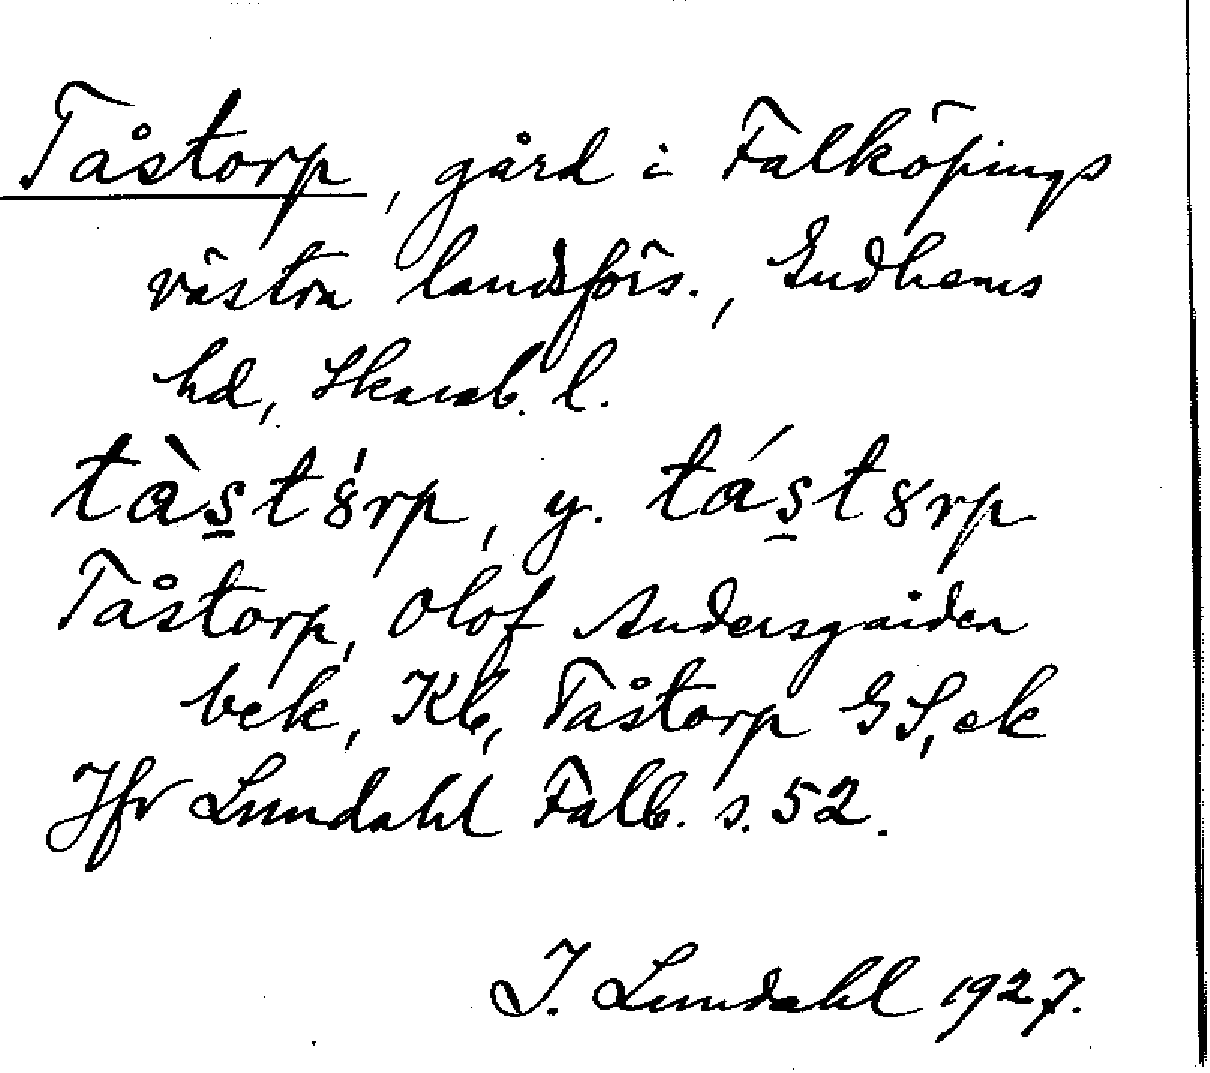 Tåstorp, gård i Falköpings
västra landsförs., Gudhems
hd, Skarab. l.
tàs̲t8́rp, y. tás̲t8rp
Tåstorp, Olof Andersgården
bek, Kb, Tåstorp GS, ek
Jfr Lundahl Falb. s. 52.
I. Lundahl 1927.